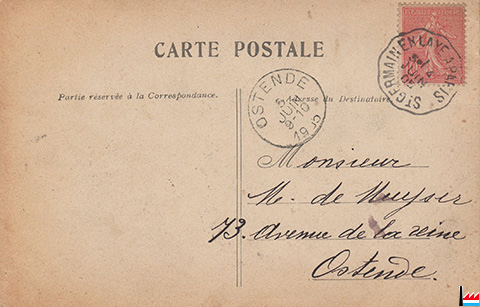 CARTE POSTALE
Partie réservée à la Correspondance.
Adresse du Destinataire
ST GERMAIN-EN-LAYE A PARIS
JUIN
OSTENDE
5
JUIN
9-10
19 05
Monsieur
M. de Muyser
73. Avenue de la reine
Ostende.